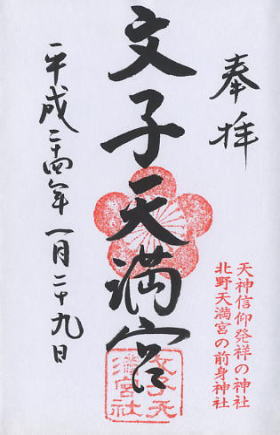 奉拝
天神信仰発祥の神社
北野天満宮の前身神社
文子天満宮
文子天
満宮社
平成二十四年一月二十九日